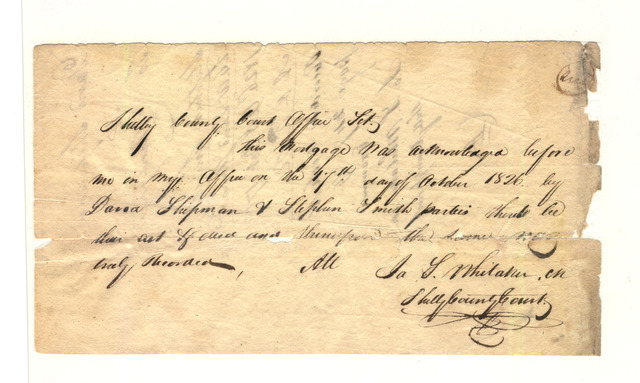 Shelby County Court Office Sct.
This Mortgage was acknowledged before
me in my Office on the 17th day of October 1826 by
David Shipman & Stephen Smith parties thereto to be
their act & deed and thereupon the same was
truly Recorded, Att
Ja S. Whitaker, Clk
Shelby County Court